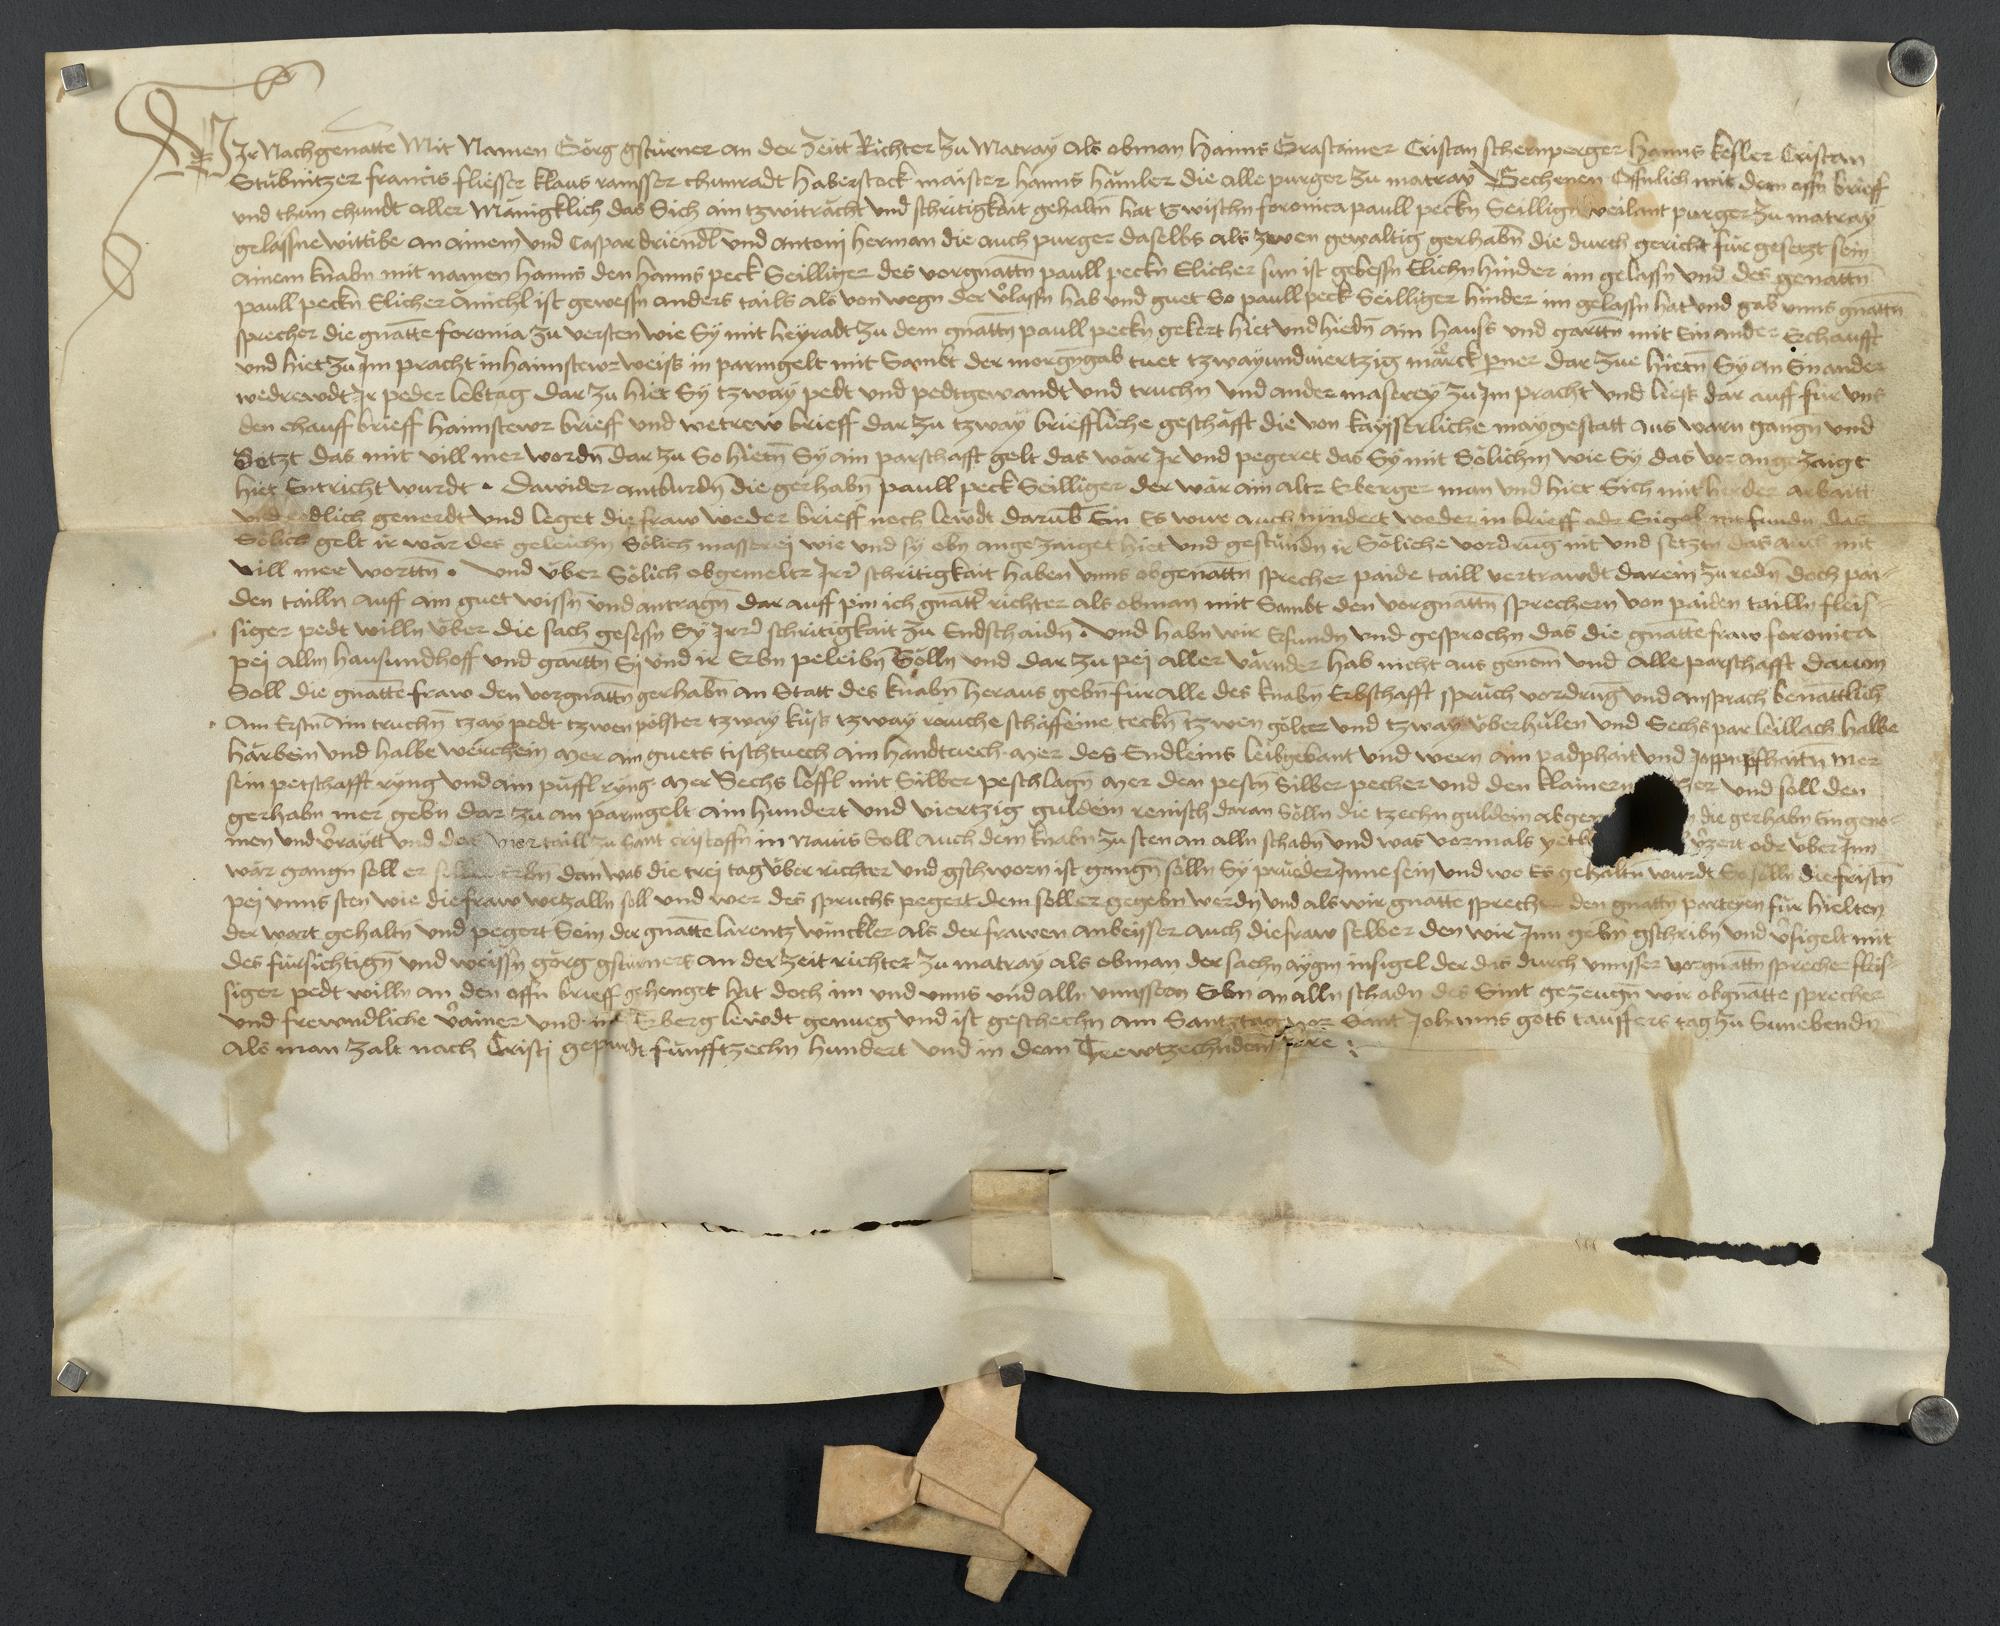 WIr Nachgenatte Mit Namen Görg gstürner an der Zeitt Richter Zu Matray als obman Hanns Grastainer Cristan schernperger Hanns kesler Cristan
Stubnitzer francis fliesser klaus ramsser chunradt haberstock maister hanns hamler die alle purger zu matray Bechenen Offnlich mit dem offn brieff
und thun chundt aller Mänigklich das Sich ain tzwitracht und schritigkait gehaltn hat tzwischn foronica paull peckn Seillign weilant purger zu matray
gelassne wittibe an ainem und Caspar driendl und antonj herman die auch purger daselbs als zwen gewaltig gerhabn die durch gericht für gesetzt sein
ainem knabn mit namen hanns den hanns peck Seilliger des vorgnattn paull peckn Elicher sun ist gebessn Elichn hinder im gelassn und des genattn
paull peckn Elicher änichl ist gewessn anders tails als von wegn der v̈lassn hab und guet So paull peck Seilliger hinder im gelassn hat und gab unns gnattn
sprecher die gnatte foronia zu versten wie Sy mit heyradt zu dem gnattn paull peckn gekert hiet und hiedn ain hauss und garttn mit Ein ander Echaufft
und hiet zu Im pracht in haimstewr weiss in parmgelt mit Sambt der morgngab tuet tzwayundviertzig marck perner dar zue hietn Sy an Einander
wedrewdt Ir peder lebtag dar zu hiet Sy tzway pedt und pedtgewandt und truchn und ander maserey zu Im pracht und liess dar auff für uns
den chauff brieff haimstewr brieff und wetrew brieff dar zu tzway brieffliche geschäfft die von kaysserliche maygestatt aus warn gangn und
Setzt das mit vill mer wordn dar zu So hietn Sy ain parschafft gelt das wär Ir und pegeret das Sy mit Sölichm wie Sy das vor angezaigt
hiet Entricht wurdt . Dawider antburdn die gerhabn paull peck Seilliger der wär ain altr Eberger man und hiet Sich mit herder arbaitt
und redlich generdt und leget die fraw weder brieff noch lewdt darub Ein Es wure auch nindert weder in brieff odr Sigel nit fundn das
Sölich gelt ir wär des geleichn Sölich masserej wie und sy obn angezaiget hiet und gestundn ir Söliche vordrug nit und setztn das auch mit
vill mer worttn . und über Sölich obgemeltr Irr schritigkait haben unns obgenattn sprecher paide taill vertrawdt darein zu redn doch pai-
den tailln auff ain guet wissn und antragn dar auff pin ich gnattr richter als obman mit Sambt den vorgnattn sprechern von paiden tailln fleis-
siger pedt willn über die sach gesessn Sy Irer schritigkait zu Endschaidn . und habn wir Efundn und gesprochn das die gnatte fraw foronica
pej allm hausundhoff und garttn Sj und ir Erbn peleibn Sölln und dar zu pej aller varnder hab nicht aus genom und alle parschafft dauon
Soll die gnatte fraw den vorgnattn gerhabn an Statt des knabn heraus gebn für alle des knabn Erbschafft spruch vordrug und ansprach benättlich
Am Erstn ain truchn tzway pedt tzwen pölster tzway küss tzway rauche schäffeine teckn tzwen gölter und tzway überhulen und Sechs par leillach halbe
harbein und halbe werchein mer ain guets tischtuech ain handtuech mer des Endleins leibgebant und wern ain padphait und Joppnpfhaittn mer
sein petschafft ryng und ain puffl ryng mer Sechs löffl mit Silber peschlagn mer den pestn Silber pecher und den klainern ...her und soll den
gerhabn mer gebn dar zu an parmgelt ain hundert und viertzig guldein reinisch daran Sölln die tzechn guldein abgen... die gerhabn Eingeno-
men und v̈raytt und der viertaill zu Sant cristoffn in nauis Soll auch dem knabn zu sten an alln schadn und was vormals ...tzert odr über Inn
wär gangn soll er ... dan was die trej tag über richter und gschworn ist gangn sölln Sy prueder Inne sein und wo Es gehaltn wurdt So sölln die fristn
pej unns sten wie die fraw wetzalln soll und wer des spruchs pegert dem soll er gegebn werdn und als wir gnatte sprecher den gnattn parteyen für hielten
der wart gehaltn und pegert Sein der gnatte larentz winckler als der frawen anbeisser auch die fraw selber den wir Inn gebn gschribn und v̈sigelt mit
des fürsichtign und weissn görg gstürners an der zeit richter zu matray als obman der sachn aygm insigel der das durch unnsser vorgnattn sprecher fleis-
siger pedt willn an den offn brieff gehenget hat doch im und unns und alln unnssern Erbn an alln schadn des Sint gezeugn wir obgnatte sprecher
und frewndliche v̈ainer und in Eberg lewdt genueg und ist geschechn am Santztag vor Sant Johanns gots tauffers tag zu Sunebendn
Als man zalt nach Cristj gepurdt funfftzechn hundert und in dem Trewtzechndem Jare :